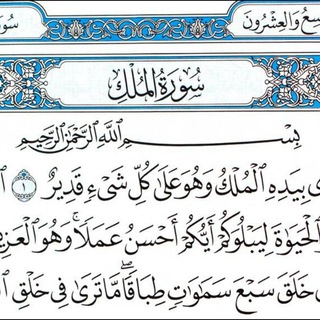 سع والعشرون سو
سُورَةُ المُلْكِ
بِسْمِ ٱللَّهِ ٱلرَّحْمَٰنِ ٱلرَّحِيمِ
بِيَدِهِ ٱلْمُلْكُ وَهُوَ عَلَىٰ كُلِّ شَىْءٍ قَدِيرٌ ١
ٱلْحَيَوٰةَ لِيَبْلُوَكُمْ أَيُّكُمْ أَحْسَنُ عَمَلًا ۚ وَهُوَ ٱلْعَزِي
خَلَقَ سَبْعَ سَمَٰوَٰتٍ طِبَاقًا ۖ مَّا تَرَىٰ فِى خَلْقِ